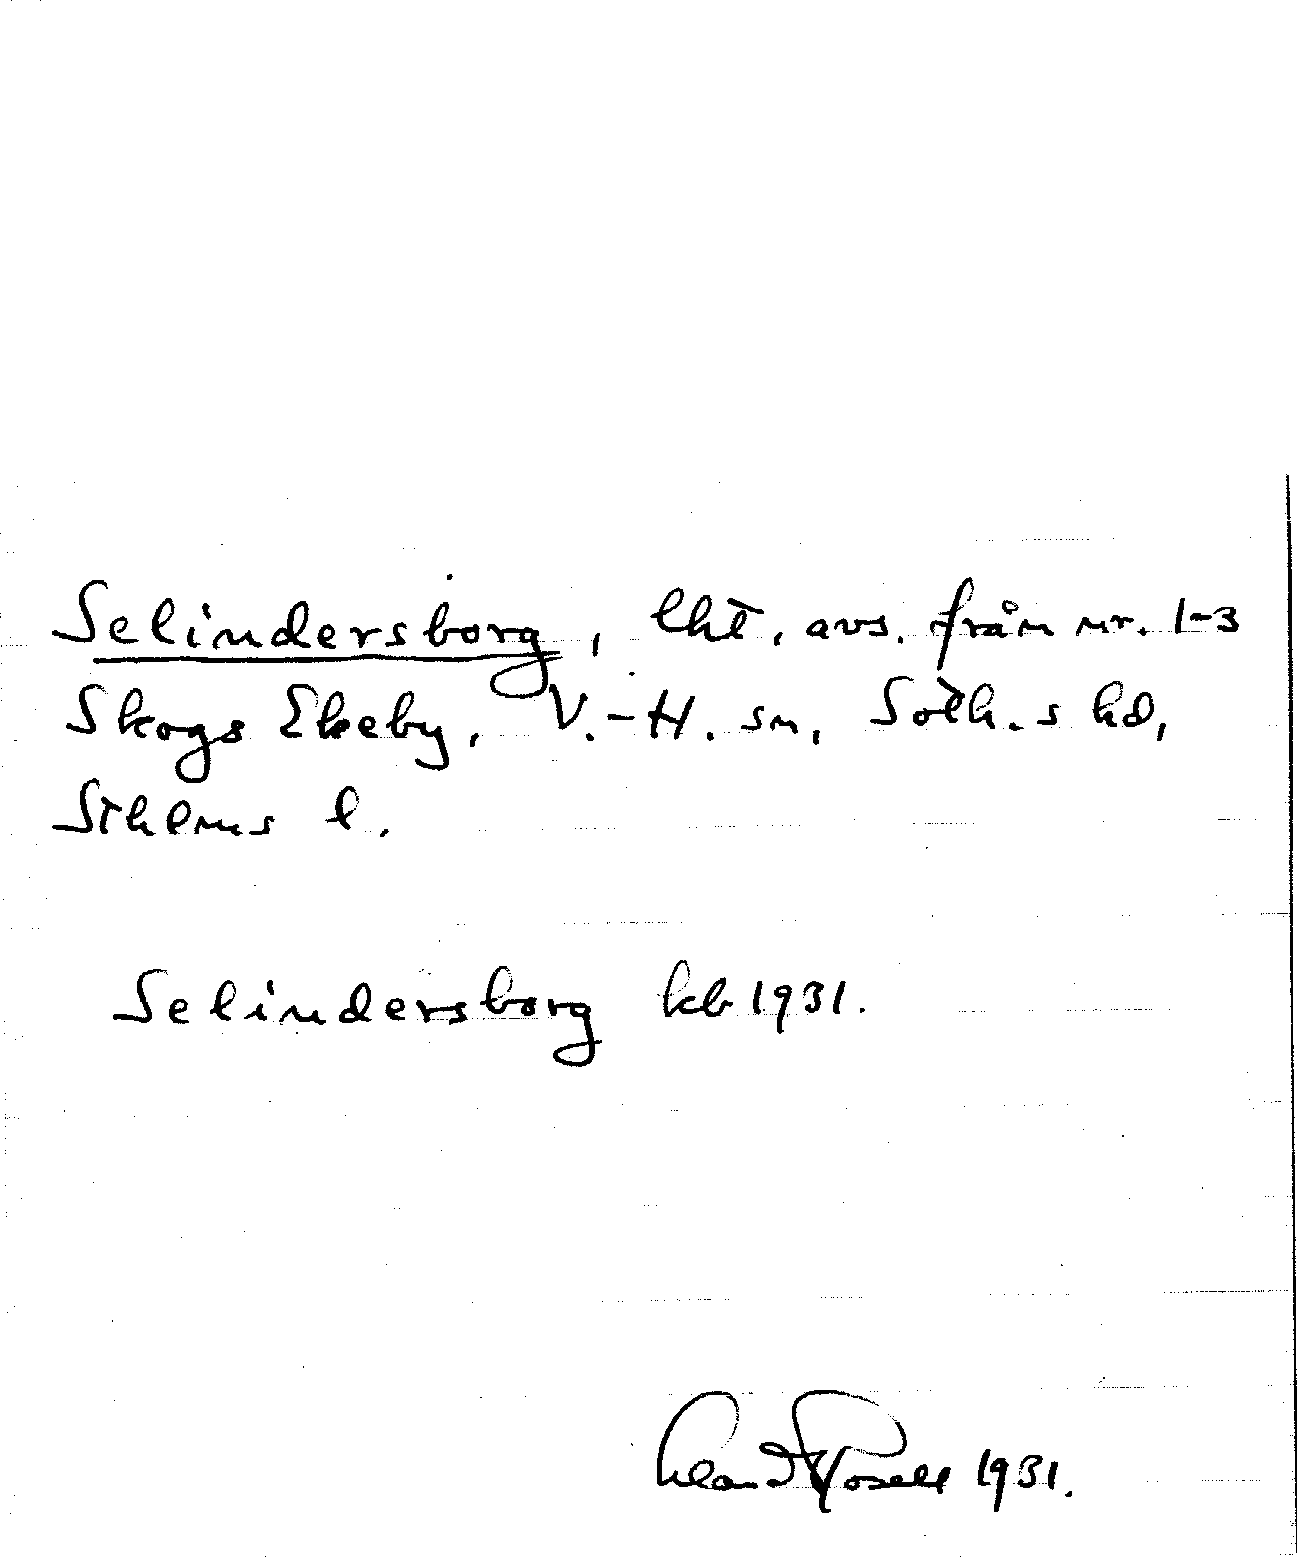 Selindersborg, lht, avs. från nr. 1-3
Skogs Ekeby, V.-H. sn, Sotn.s hd,
Sthlms l.
Selindersborg kb 1931.
1931.